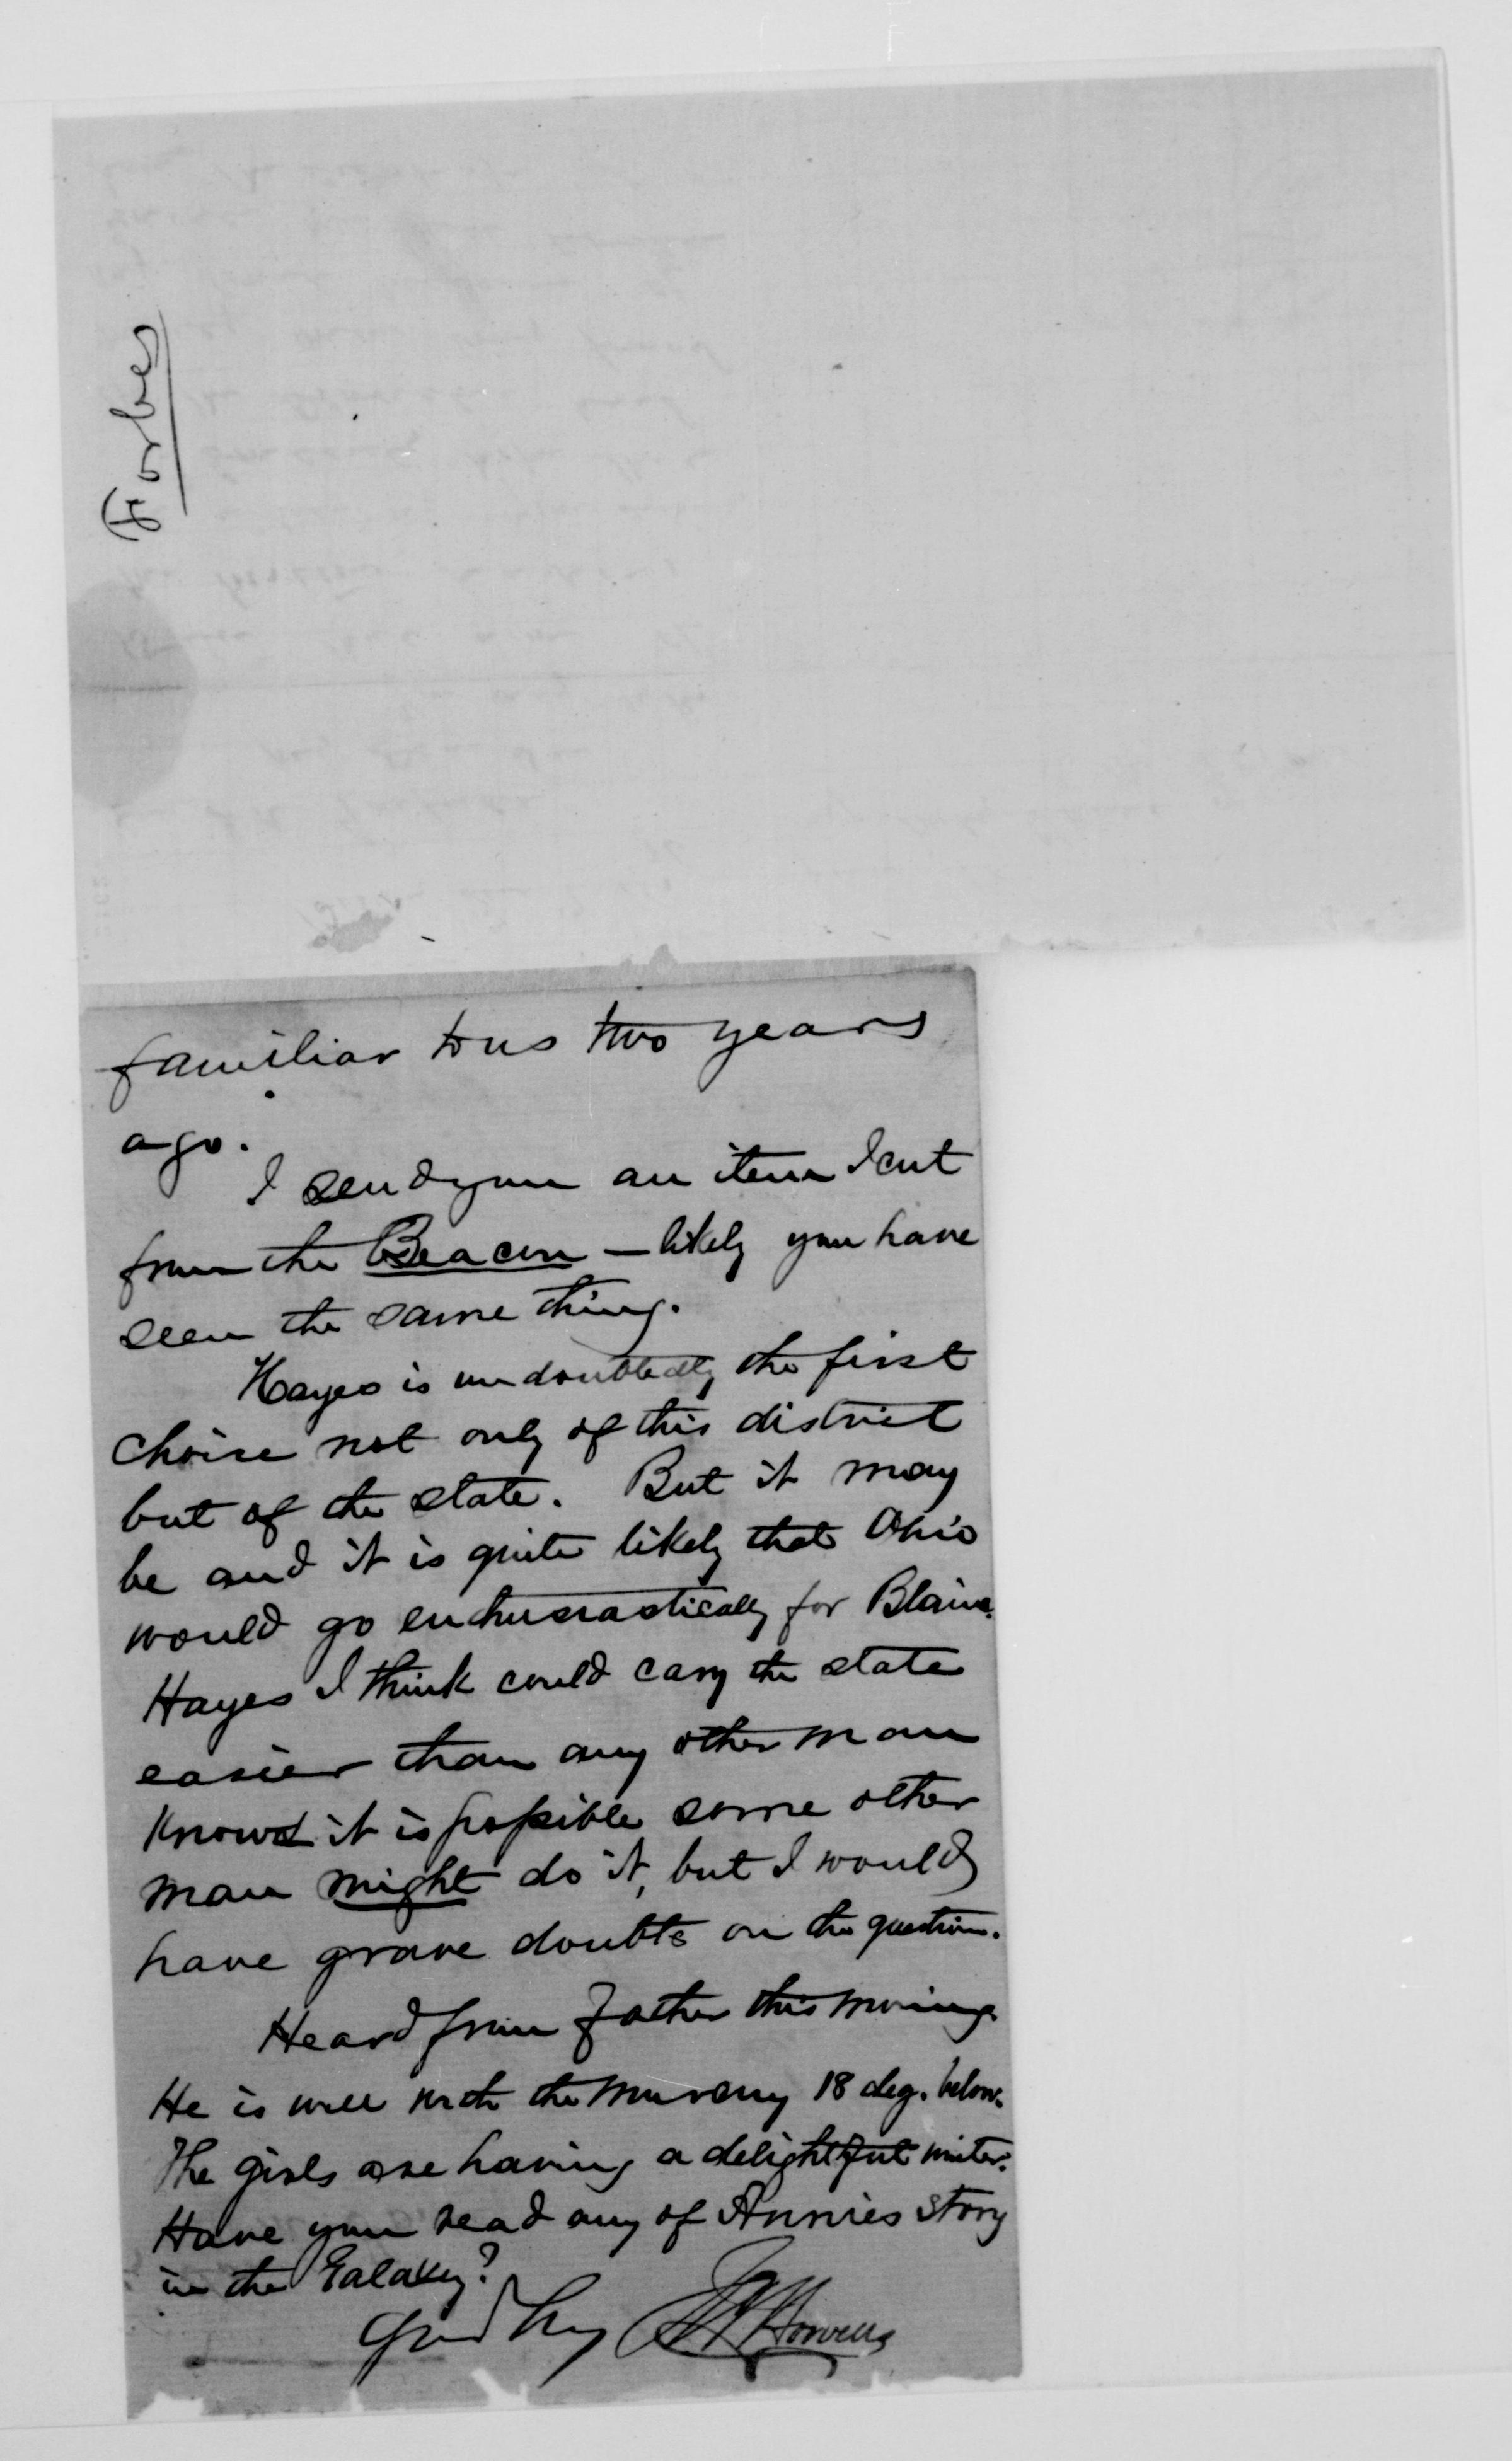 Forbes
familiar to us two years
ago.
I send you an item I cut
from the Beacon — likely you have
seen the same thing.
Hayes is undoubtedly the first
choice not only of this district
but of the state. But it may
be and it is quite likely that Ohio
would go enthusiastically for Blaine.
Hayes I think could cary the state
easier than any other man
it is possible some other
man might do it, but I would
have grave doubts on the question.
Heard from father this morning.
He is well with the mercury 18 deg. below.
The girls are having a delightful winter.
Have you read any of Annies story
in the Galaxy?
Good by Howells